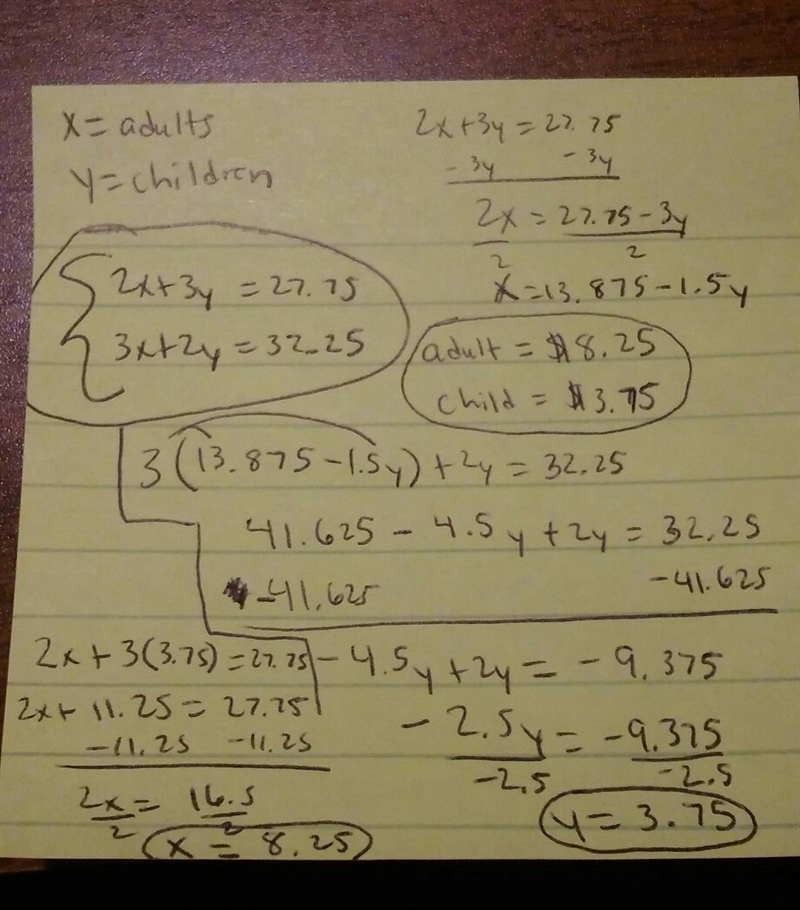 x = adults
y = children
2x+3y = 27.75
3x+2y = 32.25
2x+3y = 27.75
-3y -3y
2x = 27.75 - 3y
2 2
x = 13.875 - 1.5y
adult = $8.25
child = $3.75
3(13.875 - 1.5y) + 2y = 32.25
41.625 - 4.5y + 2y = 32.25
-41.625 -41.625
-4.5y + 2y = -9.375
-2.5y = -9.375
-2.5 -2.5
y = 3.75
2x + 3(3.75) = 27.75
2x + 11.25 = 27.75
-11.25 -11.25
2x = 16.5
2 2
x = 8.25